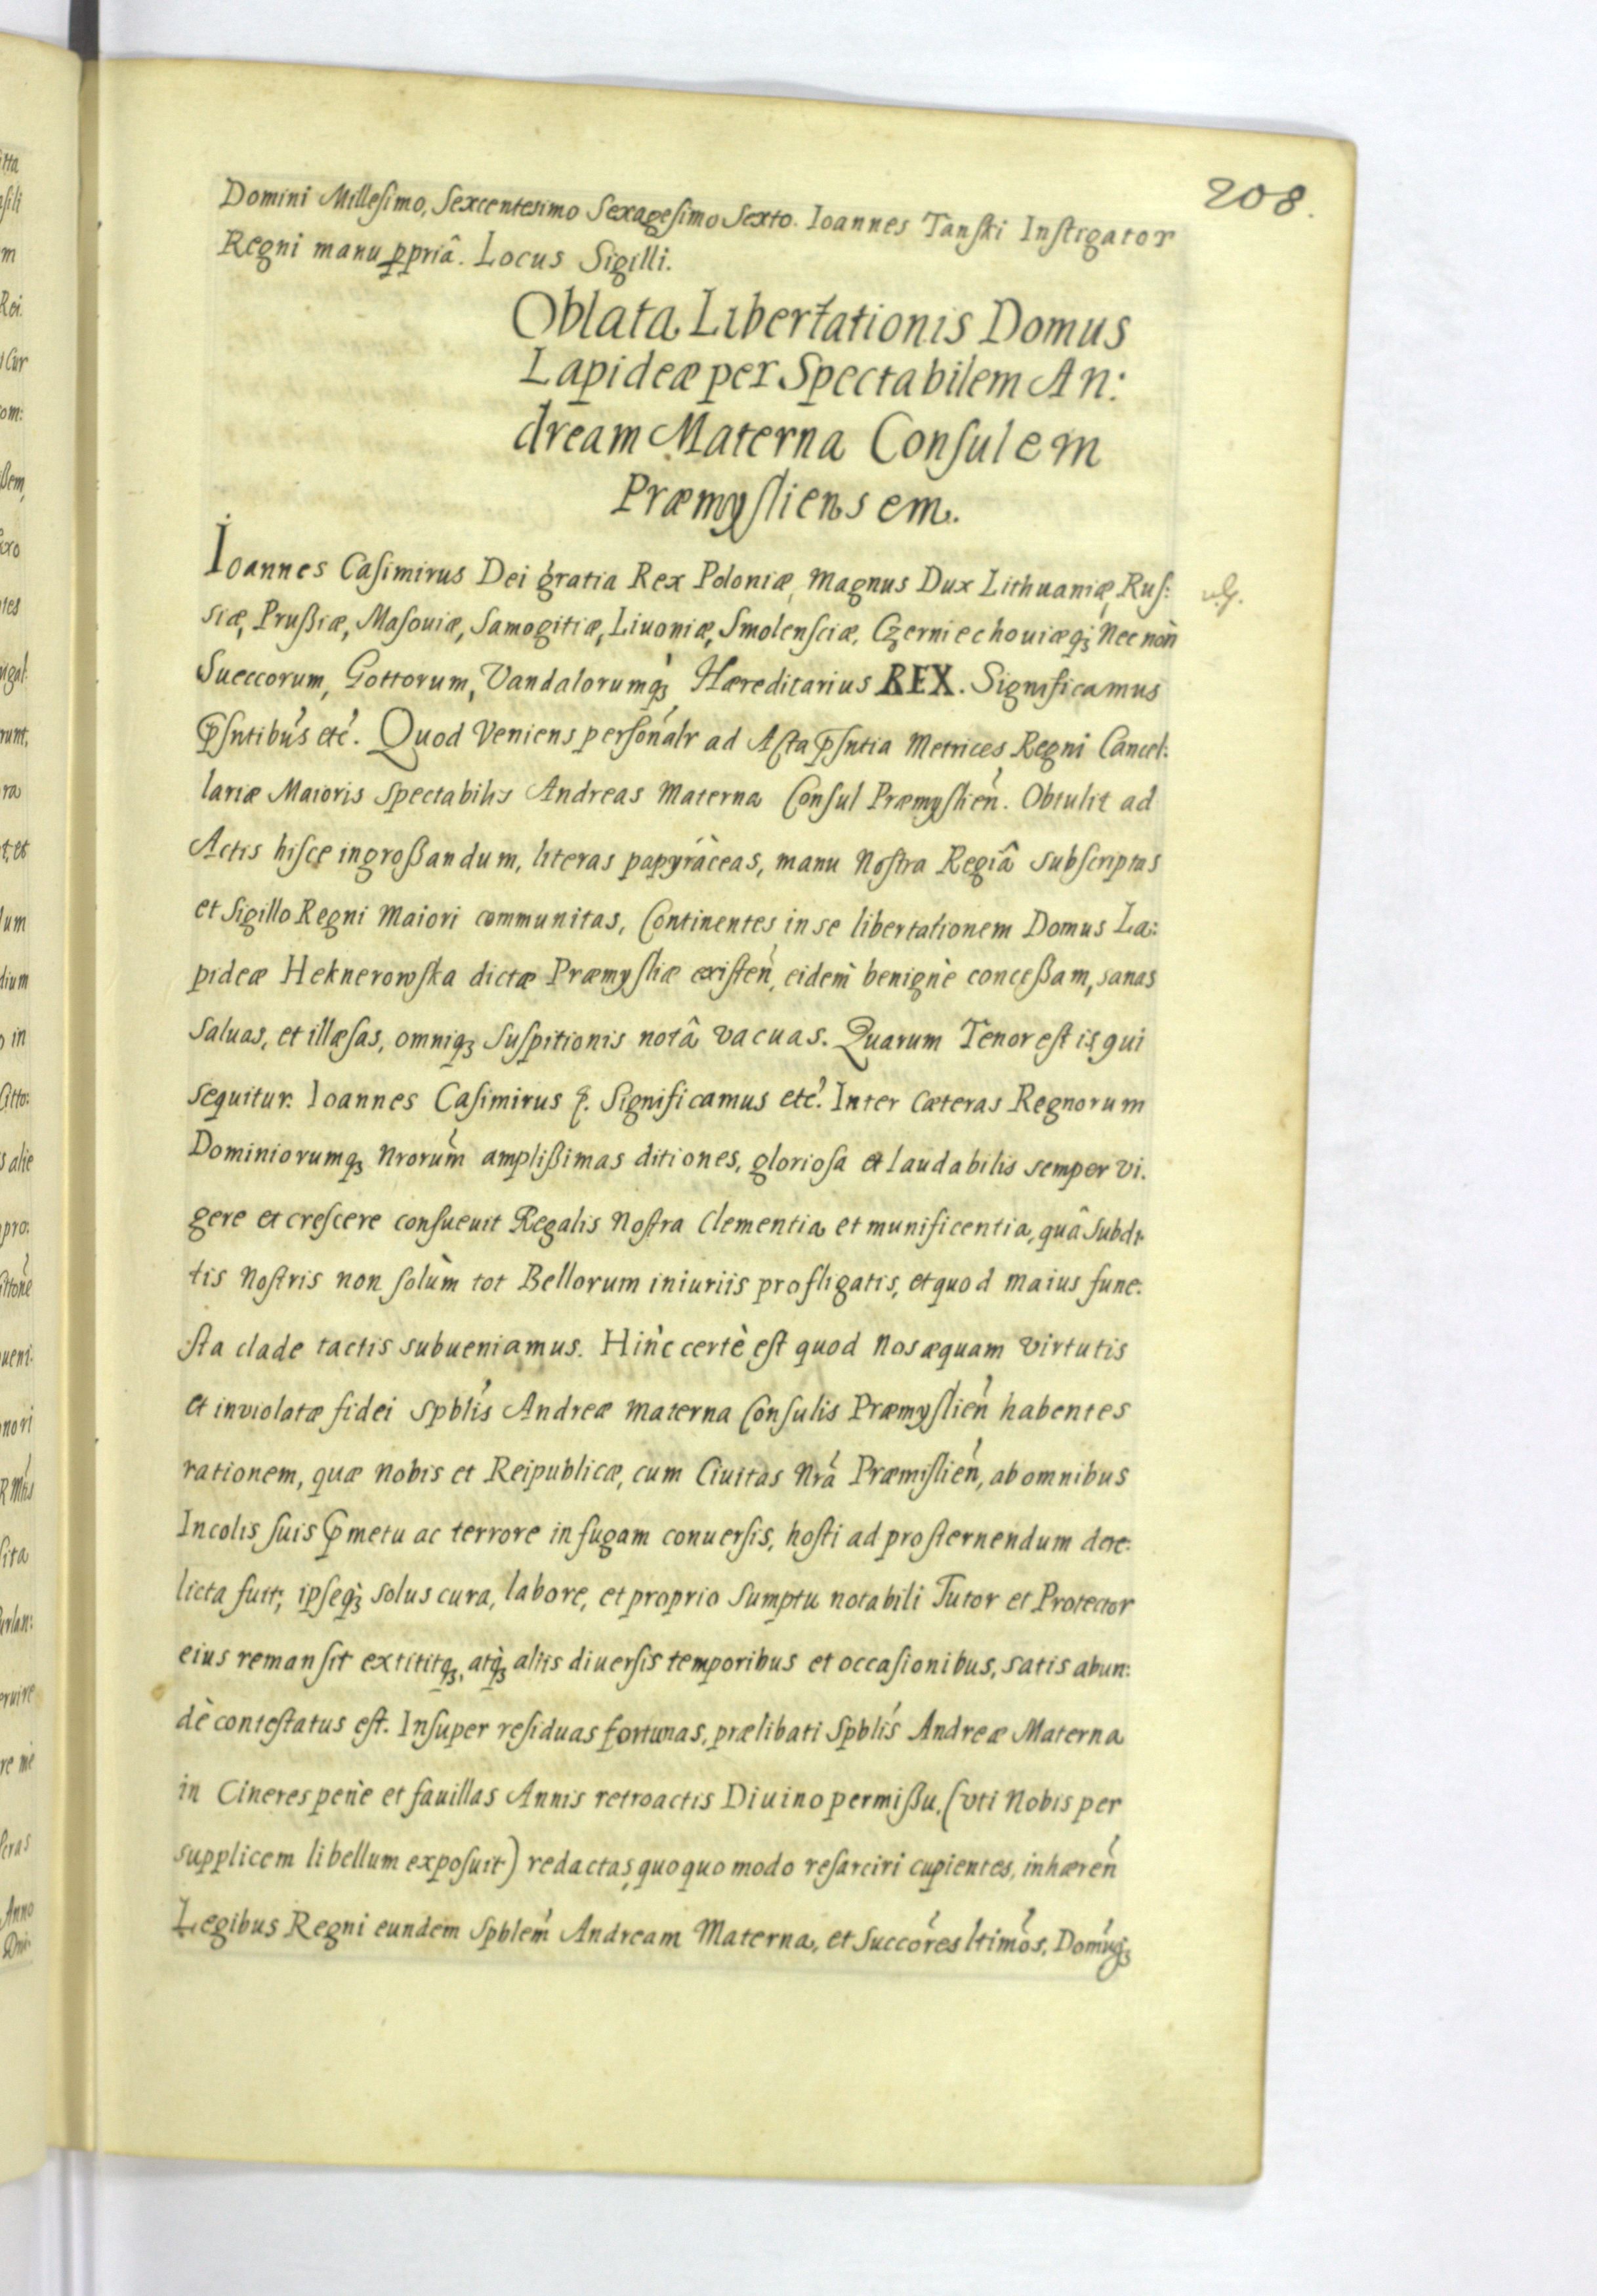 208.
Domini Millesimo, Sexcentesimo Sexagesimo Sexto. Ioannes Tanski Instigator
Regni manu ppriâ. Locus Sigilli.
Oblata Libertationis Domus
Lapideæ per Spectabilem An:
dream Materna Consulem
Præmysliensem.
Ioannes Casimirus Dei gratia Rex Poloniæ, Magnus Dux Lithuaniæ, Rus:
siæ, Prußiæ, Masouiæ, Samogitiæ, Liuoniæ, Smolensciæ, Czerniechouiæq; Nec nòn
Sueccorum, Gottorum, Vandalorumq; Hæreditarius REX. Significamus
p̄sntibus etc. Quod Veniens personalr ad Acta p̄sntia Metrices Regni Cancel:
lariæ Maioris Spectabilis Andreas Materna Consul Præmyslien̄. Obtulit ad
Actis hisce ingroßandum, literas papyráceas, manu Nostra Regiâ subscriptas
et Sigillo Regni Maiori communitas, Continentes in se libertationem Domus La:
pideæ Heknerowska dictæ Præmysliæ existen̄, eidem benignè conceßam, sanas
saluas, et illæsas, omniq; suspitionis notâ vacuas. Quarum Tenor est is qui
sequitur. Ioannes Casimirus etc. Significamus etc. Inter Cæteras Regnorum
Dominiorumq; Nrorum̄ amplißimas ditiones, gloriosa et laudabilis semper vi.
gere et crescere consueuit Regalis Nostra Clementia et munificentia, quâ Subdi:
tis Nostris non solùm tot Bellorum iniuriis profligatis, et quod maius fune:
sta clade tactis subueniamus. Hinc certè est quod Nos æquam virtutis
et inviolatæ fidei Spblis Andreæ Materna Consulis Præmyslien̄ habentes
rationem, quæ Nobis et Reipublicæ, cum Ciuitas Nrā Præmislien̄, ab omnibus
Incolis suis p̄ metu ac terrore in fugam conuersis, hosti ad prosternendum dere:
licta fuit; ipseq; solus cura, labore, et proprio Sumptu notabili Tutor et Protector
eius remansit extititq;, atq; aliis diuersis temporibus et occasionibus, satis abun:
dè contestatus est. Insuper residuas fortunas, prælibati Spblis Andreæ Materna
in Cineres penè et fauillas Annis retroactis Diuino permißu, (vti Nobis per
supplicem libellum exposuit) redactas, quoquo modo resarciri cupientes, inhæren̄
Legibus Regni eundem Spblem̄ Andream Materna, et Succores ltimos, Domūq;